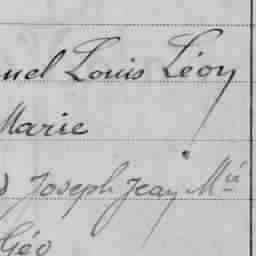 uel Louis Léon
Marie
Joseph Jean Mie
Géo